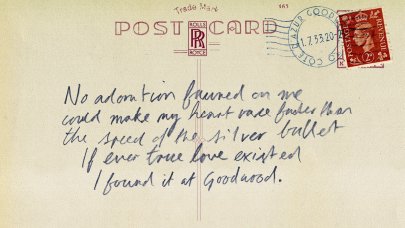 Trade Mark
POST CARD
ROLLS
RR
ROYCE
163
COTE D'AZUR GOODWOOD
1.7.33.20-2
POSTAGE REVENUE
2D
No adoration fawned on me
could make my heart race faster than
the speed of the silver bullet
If ever true love existed
I found it at Goodwood.